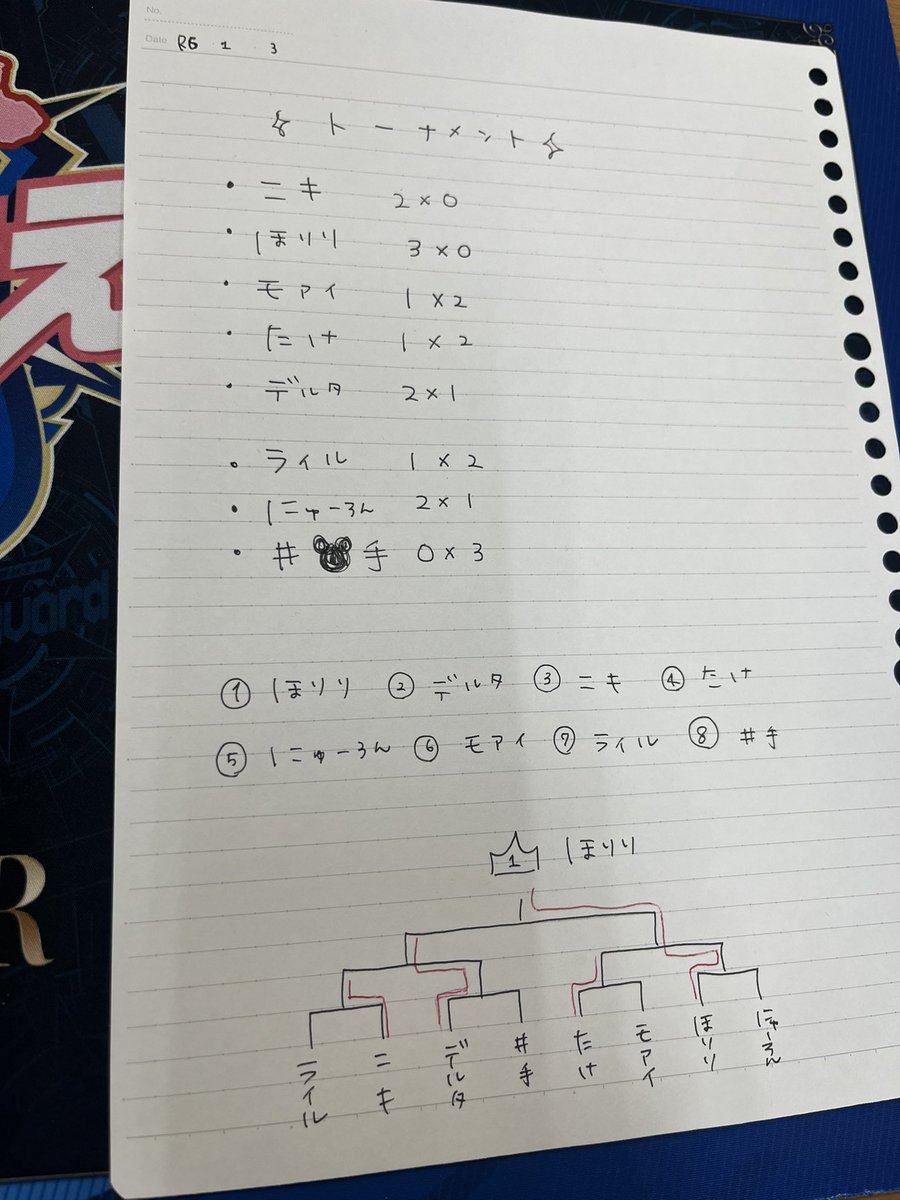 No.
Date R6 1 3
☆トーナメント☆
・ニキ 2×0
・ほりり 3×0
・モアイ 1×2
・たけ 1×2
・デルタ 2×1
・ライル 1×2
・にゅーろん 2×1
・井手 0×3
①ほりり ②デルタ ③ニキ ④たけ
⑤にゅーろん ⑥モアイ ⑦ライル ⑧井手
1 ほりり
ライル
ニキ
デルタ
井手
たけ
モアイ
ほりり
にゅーろん
guard
R